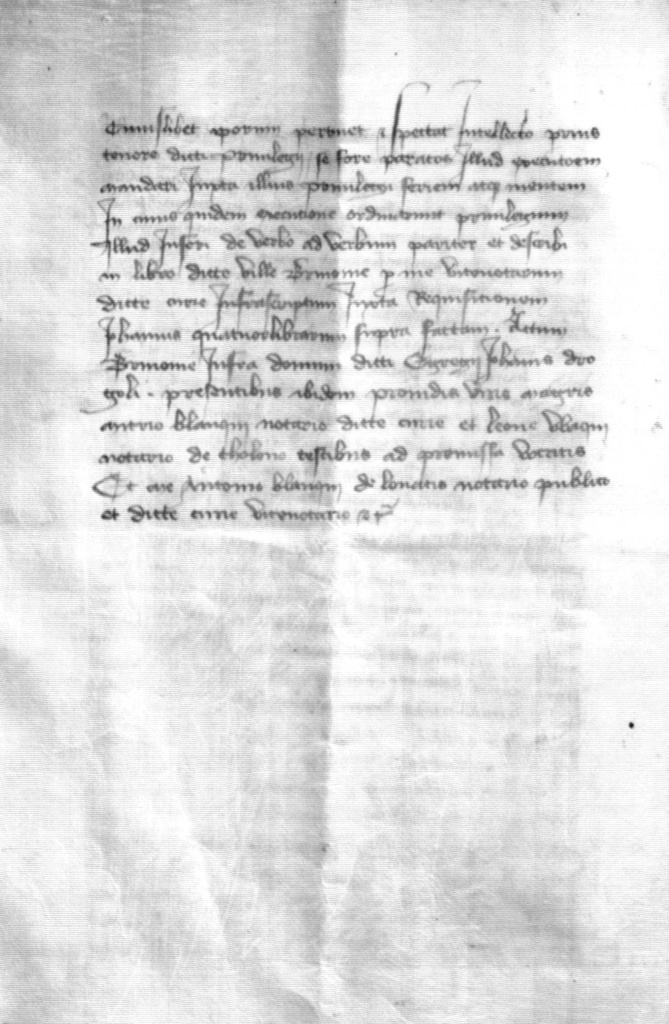 Cuiuslibet ipsorum pertinet & spectat Intellecto prius
tenore dicti privilegii se fore paratos Illud executioni
mandari Iuxta illius privilegii seriem atque mentem
In cuius quidem executione ordinaverunt privilegium
Illud Inseri de verbo ad verbum pariter et describi
in libro dicte ville Brinonie per me vicenotarium
dicte curie Infrascriptum Iuxta Requisitionem
Johannis quatuorlibrarum supra factam. Actum
Brinonie Infra domum dicti Johannis dro
goli. presentibus ibidem providis viris
blanqui notario dicte curie et leone
notario de tholono testibus ad premissa vocatis
Et me Antonio blanqui de notario publico
et dicte curie vicenotario &c